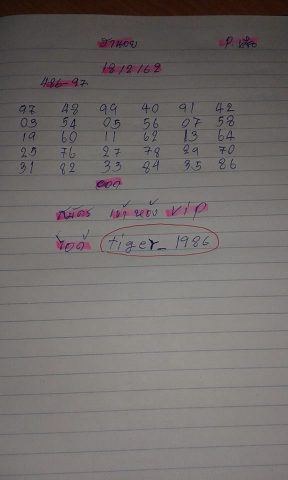 ฮานอย
18 12 62
486-97
97 48 99 40 91 42
03 54 05 56 07 58
19 60 11 62 13 64
25 76 27 78 29 70
31 82 33 84 35 86
สมัคร เข้า ห้อง vip
ไอดี tiger_1986